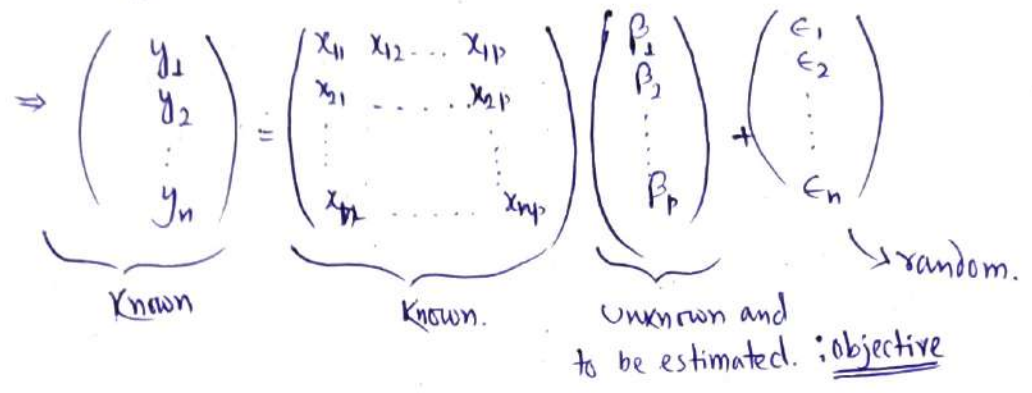 ⇒ ( y₁ y₂ ⋮ yₙ ) = ( x₁₁ x₁₂ ... x₁ₚ x₂₁ ..... x₂ₚ ⋮ ⋮ ...... xₙₚ ) ( β₁ β₂ ⋮ βₚ ) + ( ε₁ ε₂ ⋮ εₙ )
Known Known. Unknown and → random.
to be estimated. : objective